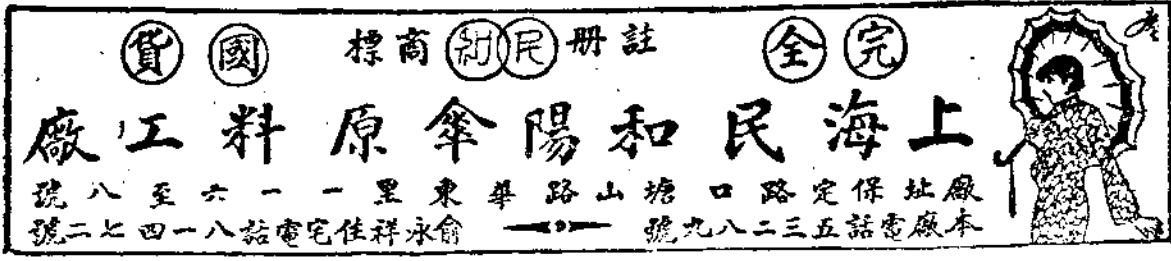 完全 註册民和商標 國貨
上海民和陽傘原料工廠
廠址保定路口塘山路華東里一一一六至八號
本廠電話五三二八九號 俞永祥住宅電話八一四七二號